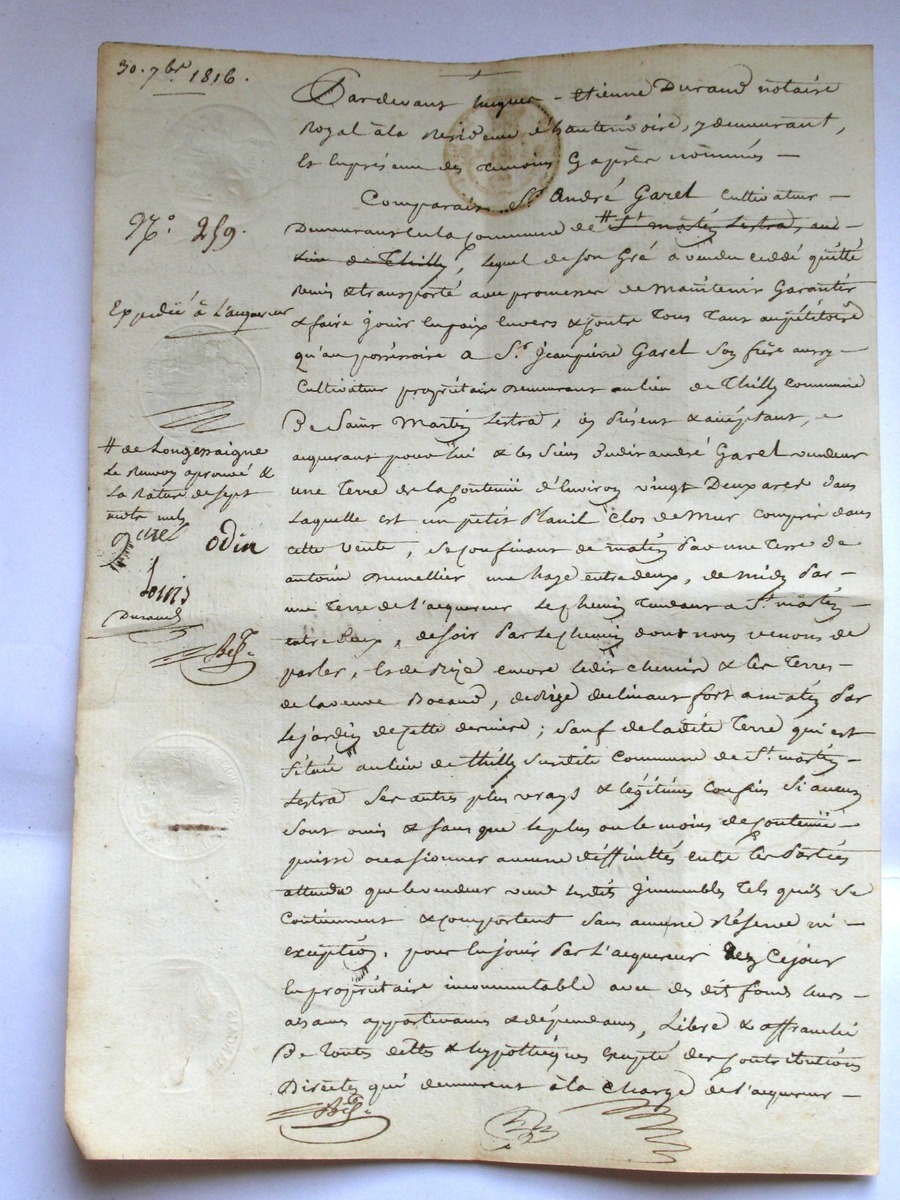 30. 7bre 1816.
Pardevant hugues - etienne Durand notaire
Royal à la Residence d'hauterivoire, y demeurant,
Et En présence des temoins Cy après nommés —
Comparait Sr. André Garel Cultivateur —
Demeurant En la Commune de # St martin Lestra, au
Lieu de Thilly, lequel de son Gré à vendu ceddé quitté
Remis & transporté avec promesse de maintenir Garantir
& faire jouir En paix Envers & Contre Tous Tant au pétitoire
qu'au possessoire a Sr. Jeanpierre Garel Son frère aussy
Cultivateur propriétaire Demeurant au lieu de Thilly Commune
De Saint Martin Lestra, icy Présent & acceptant, &
aquerant pour lui & les Siens Dudit andré Garel vendeur
une Terre de la Contenue d'Environ vingt Deux ares dans
Laquelle est un petit Clos de Mur Compris dans
cette vente, Se Confinant de matin Par une Terre de
antoine une haye entredeux, de midy Par —
une Terre de l'acquereur Le chemin Tendant a St. martin —
entre deux, de soir Par Le chemin dont nous venons de
parler, & de Bize encore ledit chemin & les Terres —
de la veuve de Bize declinant fort a matin Par
Le jardin de Cette derniere ; Sauf de la dite Terre qui est
Située au lieu de Thilly Susdite Commune de St. martin —
Lestra Ses autres plus vrays & légitimes Confins Si aucuns
Sont omis & Sans que le plus ou le moins de Contenue —
puisse occasionner aucune difficultés entre les Parties
attendu que le vendeur vend lesdits Immeubles Tels qu'ils Se
Contiennent & Comportent Sans aucune Réserve ni —
exception, pour En jouir Par l'acquereur dez Ce jour
En propriétaire incommutable avec des dit fonds leurs —
aisances appartenances & dépendances, Libre & affranchi
De toutes dettes & hypothèques Excepté des Contributions
Directes qui demeurent à la Charge de l'acquereur —
No. 259.
Expédié à l'acquereur
# de Longessaigne
Le Renvoy aprouvé &
La Rature de Sept
mots nuls
garel odin
Louis
Durand